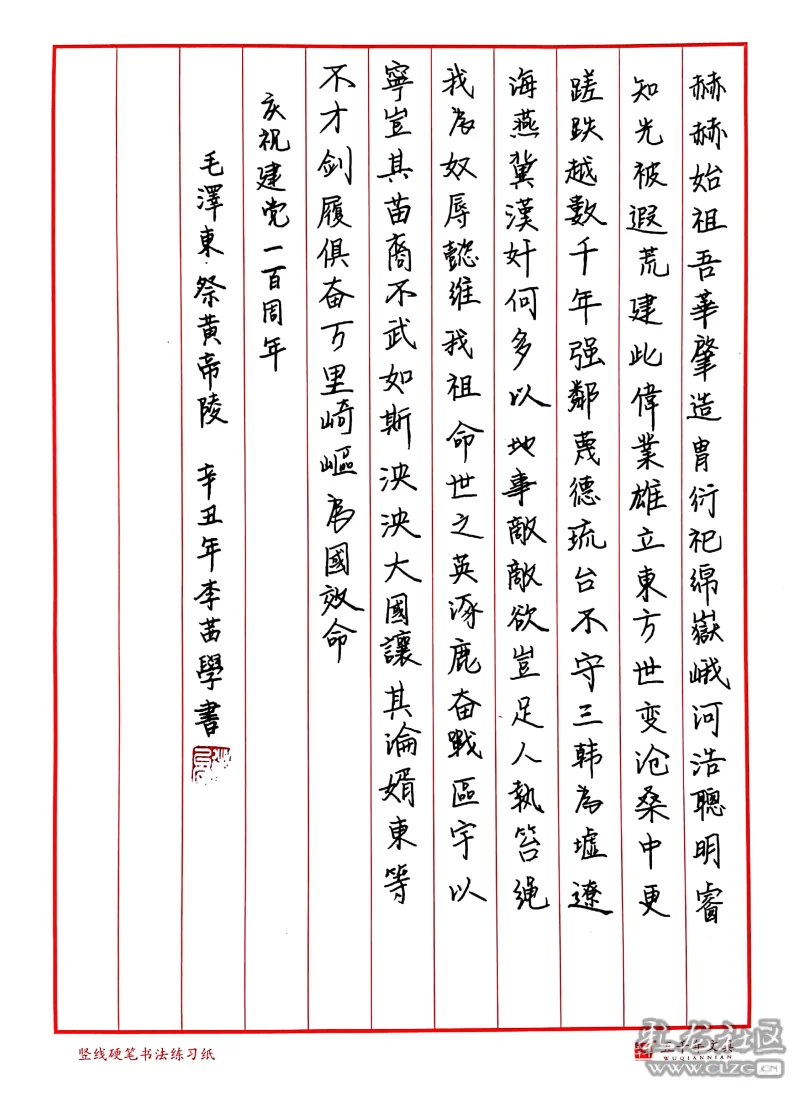 赫赫始祖吾華肇造胄衍祀綿嶽峨河浩聰明睿
知光被遐荒建此偉業雄立東方世变沧桑中更
蹉跌越數千年强鄰蔑德琉台不守三韩為墟遼
海燕冀漢奸何多以地事敵敵欲豈足人執笞绳
我為奴辱懿维我祖命世之英涿鹿奋戰區宇以
寧豈其苗裔不武如斯泱泱大國讓其淪婿東等
不才剑履俱奋万里崎嶇為國效命
庆祝建党一百周年
毛澤東祭黄帝陵 辛丑年李茜學書
竖线硬笔书法练习纸
五千年文具
WUQIANNIAN
社区
WWW.CLZG.CN